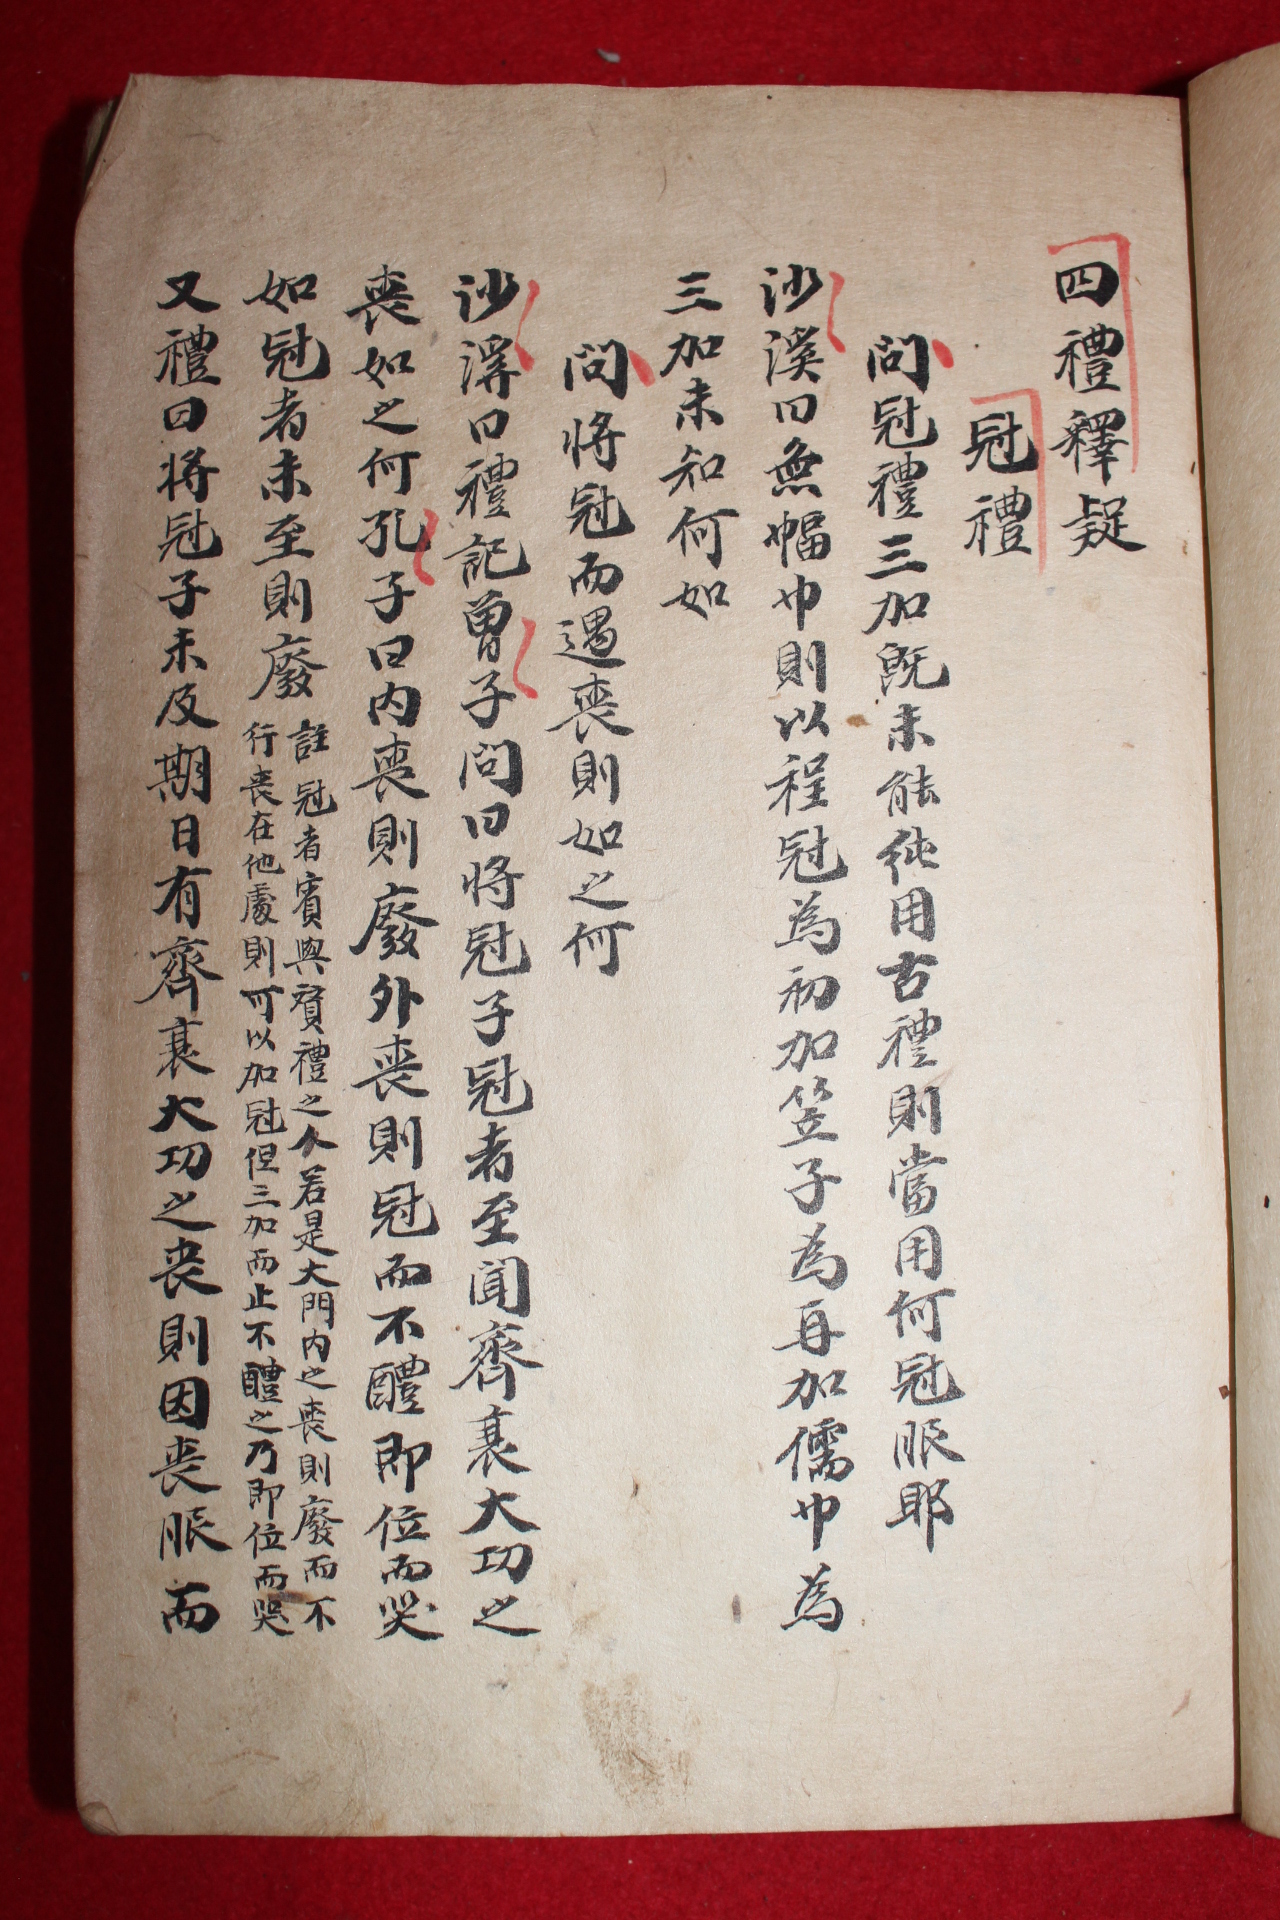 四禮釋疑
冠禮
問冠禮三加旣未能純用古禮則當用何冠服耶
沙溪曰無幅巾則以程冠為初加笠子為再加儒巾為
三加未知何如
問將冠而遇喪則如之何
沙溪曰禮記曾子問曰將冠子冠者至聞齊衰大功之
喪如之何孔子曰內喪則廢外喪則冠而不醴即位而哭
如冠者未至則廢
註冠者賓與贊禮之人若是大門內之喪則廢而不
行喪在他處則可以加冠但三加而止不醴之乃即位而哭
又禮曰將冠子未及期日有齊衰大功之喪則因喪服而